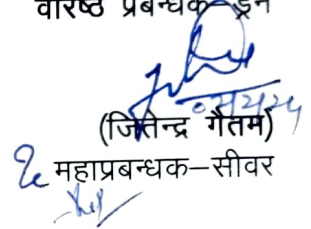 वरिष्ठ प्रबन्धक-ड्रेन
(जितेन्द्र गौतम)
महाप्रबन्धक–सीवर